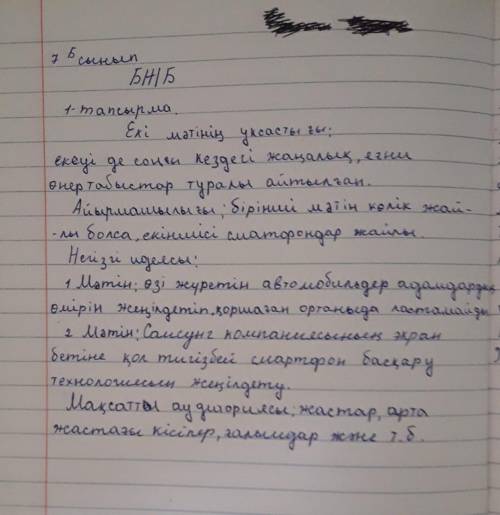 7 Б сынып
БЖБ
1-тапсырма.
Екі мәтінің ұқсастығы:
екеуі де соңғы кездегі жаңалық, яғни
өнертабыстар туралы айтылған.
Айырмашылығы; бірінші мәтін көлік жай-
-лы болса, екіншісі сматфондар жайлы.
Негізгі идеясы:
1 Мәтін: өзі жүретін автомобильдер адамдардың
өмірін жеңілдетіп, қоршаған ортаныда ластамайды
2 Мәтін: Самсунг компаниясының экран
бетіне қол тигізбей смартфон басқару
технологиясын жеңілдету.
Мақсатты аудиориясы: жастар, арта
жастағы кісілер, ғалымдар және т.б.